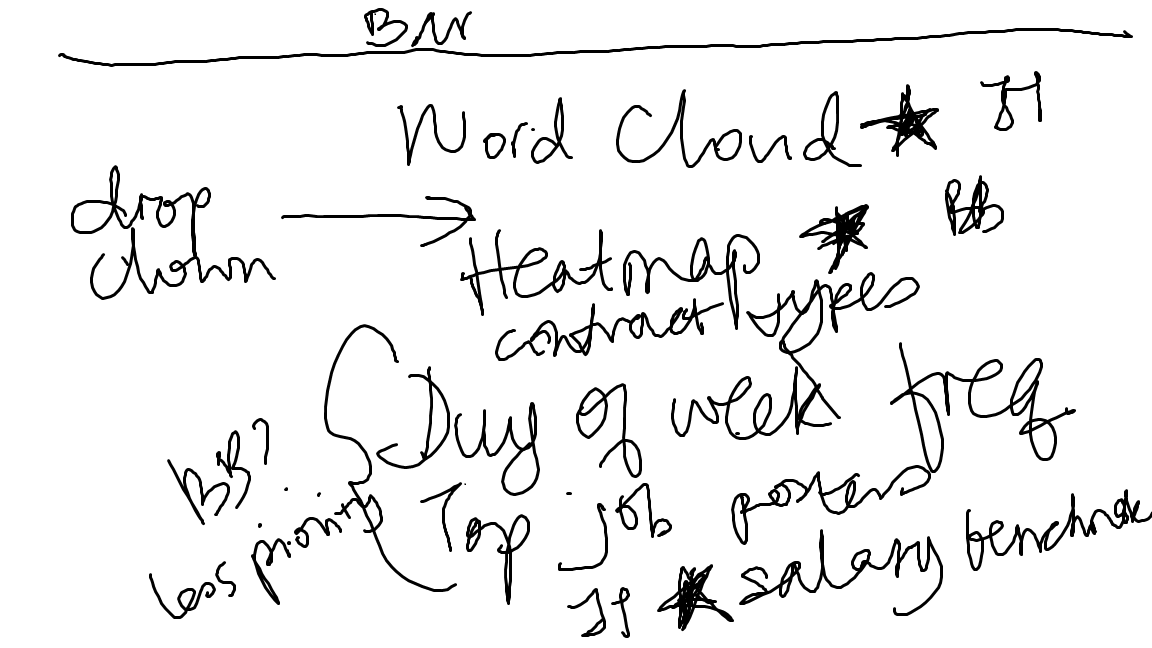 Bar
Word Cloud ★ JH
drop
down → Heatmap ★ BB
contract types
Day of week freq.
BB?
less priority
Top job posters
★ salary benchmark